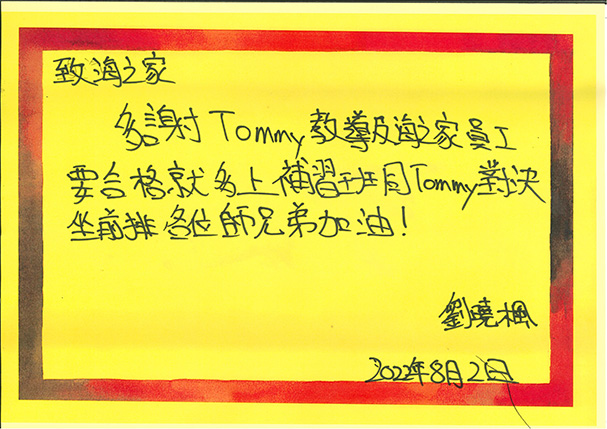 致海之家
多謝Tommy教導及海之家員工
要合格就多上補習班同Tommy對決
坐前排各位師兄弟加油!
劉曉楓
2022年8月2日